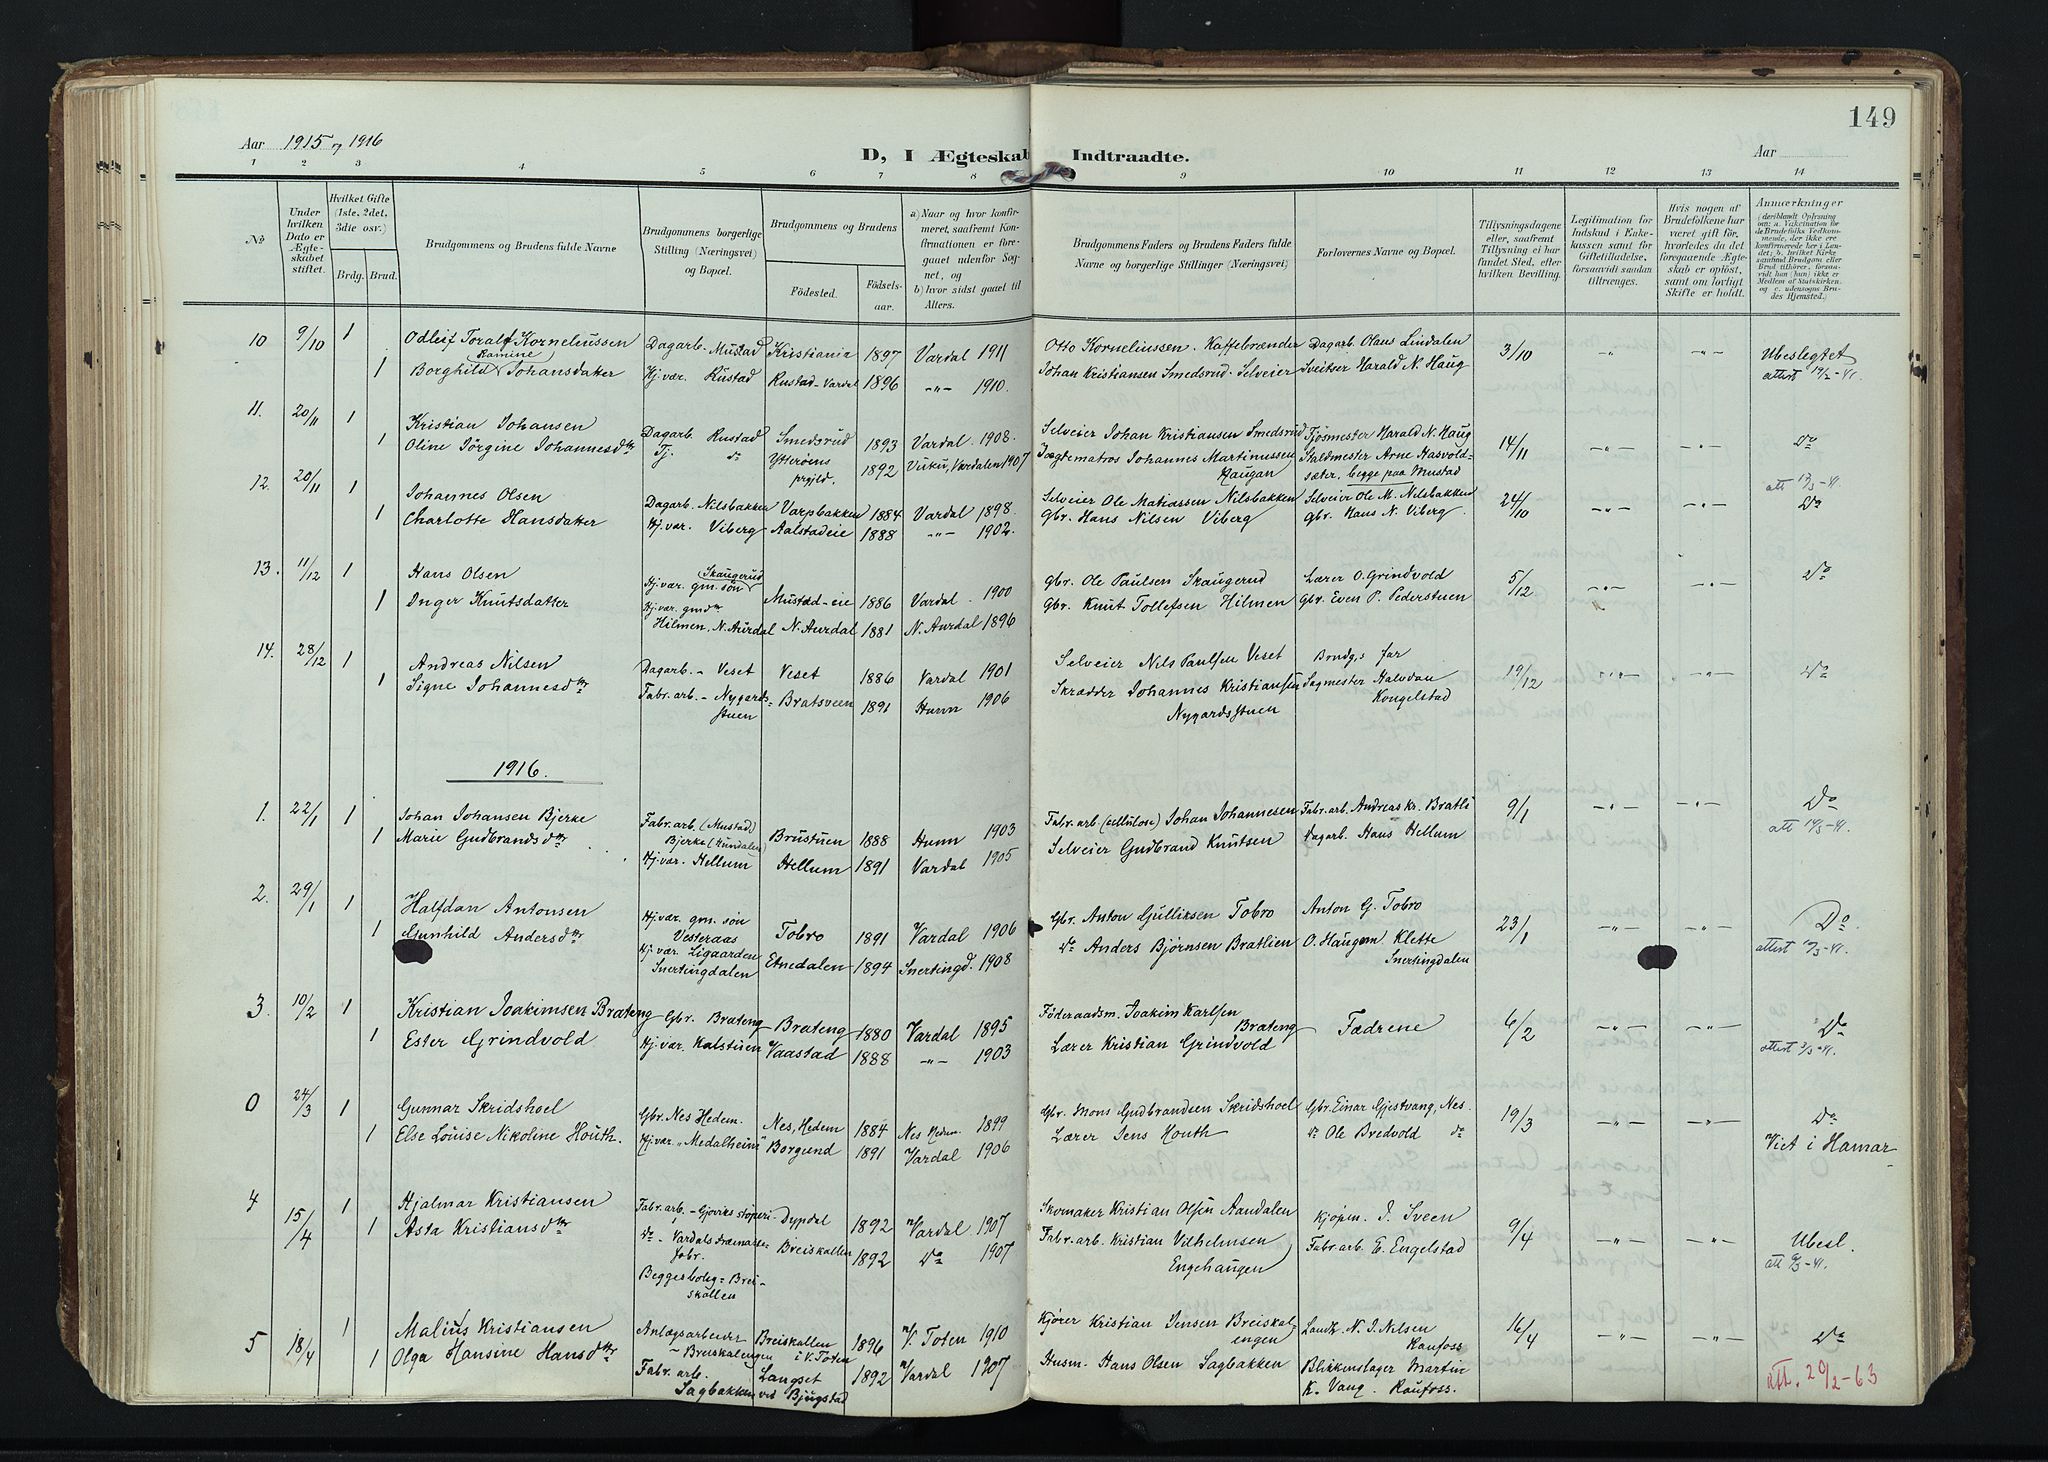 149
Aar 1915 og 1916
D, I Ægteskab Indtraadte.
Aar
1 2 3 4 5 6 7 8 9 10 11 12 13 14
No
Under hvilken Dato er Ægteskabet stiftet.
Hvilket Gifte (1ste, 2det, 3die osv.)
Brdg. Brud.
Brudgommens og Brudens fulde Navne
Brudgommens borgerlige Stilling (Næringsvei) og Bopæl.
Brudgommens og Brudens
Fødested.
Fødselsaar.
a) Naar og hvor konfirmeret, saafremt Konfirmationen er foregaaet udenfor Sognet, og
b) hvor sidst gaaet til Alters.
Brudgommens Faders og Brudens Faders fulde Navne og borgerlige Stillinger (Næringsvei)
Forlovernes Navne og Bopæl.
Tillysningsdagene eller, saafremt Tillysning ei har fundet Sted, efter hvilken Bevilling.
Legitimation for Indskud i Enkekassen samt for Giftetilladelse, forsaavidt saadan tiltrænges.
Hvis nogen af Brudefolkene har været gift før, hvorledes da det foregaaende Ægteskab er opløst, samt om lovligt Skifte er holdt.
Anmærkninger
(deriblandt Oplysning om: a. Vakcination for de Brudefolks Vedkommende, der ikke ere konfirmerede her i Landet; b. hvilket Kirkesamfund Brudgom eller Brud tilhører, forsaavidt han (hun) ikke er Medlem af Statskirken, og c. udensogns Brudes Hjemsted.)
10 9/10 1 Odleif Toralf Korneliussen Dagarb. Mustad Kristiania 1897 Vardal 1911 Otto Korneliussen. Kaffebrænder Dagarb. Olaus Lindalen 3/10 Ubeslegtet
1 Borghild Ramine Johansdatter Hj.vær. Rustad Rustad-Vardal 1896 -"- 1910. Johan Kristiansen Smedsrud. Selveier Sveitser Harald N. Haug attest 19/2-41.
11. 20/11 1 Kristian Johansen Dagarb. Rustad Smedsrud 1893 Vardal 1908. Selveier Johan Kristiansen Smedsrud Fjøsmester Harald N. Haug 14/11 -"- -"- Do
1 Oline Jørgine Johannesdtr Tj. do Ytterøens prgjld. 1892 Vuku, Værdalen 1907 Jægtematros Johannes Martinussen Haugan Staldmester Arne Hasvoldsæter, begge paa Mustad
12. 20/11 1 Johannes Olsen Dagarb. Nilsbakken Varpbakken 1884 Vardal 1898. Selveier Ole Matiassen Nilsbakken Selveier Ole M. Nilsbakken 24/10 -"- -"- Do
1 Charlotte Hansdatter Hj.vær. Viberg Aalstadeie 1888 -"- 1902. Gbr. Hans Nilsen Viberg Gbr. Hans N. Viberg.
13. 11/12 1 Hans Olsen Hj.vær. gm.søn Skaugerud Mustad-eie 1886 Vardal 1900 Gbr. Ole Paulsen Skaugerud Lærer O. Grindvold 5/12 -"- -"- Do
1 Inger Knutsdatter Hj.vær. gmdtr Hilmen, N. Aurdal N. Aurdal 1881 N. Aurdal 1896 Gbr. Knut Tollefsen Hilmen Gbr. Even P. Pederstuen
14. 28/12 1 Andreas Nilsen Dagarb. - Veset Veset 1886 Vardal 1901 Selveier Nils Paulsen Veset Brudg.s far 19/12 -"- -"- Do
1 Signe Johannesdtr Fabr.arb. - Nygardsstuen Bratsveen 1891 Hunn 1906 Skrædder Johannes Kristiansen Nygardsstuen Sagmester Halvdan Kongelstad
1916.
1. 22/1 1 Johan Johansen Bjerke Fabr.arb. (Mustad) Bjerke (Hundalen) Brustuen 1888 Hunn 1903 Fabr.arb (cellulose) Johan Johannesen Fabr.arb. Andreas Kr. Bratli 9/1 -"- -"- Do
1 Marie Gudbrandsdtr Hj.vær. Hellum Hellum 1891 Vardal 1905 Selveier Gudbrand Knutsen Dagarb. Hans Hellum
2. 29/1 1 Halfdan Antonsen Hj.vær. gm. søn Vesteraas Tobro 1891 Vardal 1906 Gbr. Anton Gulliksen Tobro Anton G. Tobro 23/1 -"- -"- Do.
1 Gunhild Andersdtr Hj.vær. Ligaarden Snertingdalen Etnedalen 1894 Snertingd. 1908 do Anders Bjørnsen Bratlien O. Haugom Klette Snertingdalen
3. 10/2 1 Kristian Joakimsen Brateng Gbr. Brateng Brateng 1880 Vardal 1895 Føderaadsm. Joakim Karlsen Brateng Fædrene 6/2 -"- -"- Do
1 Ester Grindvold Hj.vær. Kalstuen Vaastad 1888 -"- 1903 Lærer Kristian Grindvold
0 24/3 1 Gunnar Skridshoel Gbr. Nes Hedem. Nes, Hedem 1884 Nes Hedem. 1899 Gbr. Mons Gudbrandsen Skridshoel Gbr. Einar Gjestvang, Nes. 19/3 -"- -"- Do
1 Else Louise Nikoline Houth. Hj.vær. "Medalheim" Borgund 1891 Vardal 1906 Lærer Jens Houth do Ole Bredvold do Viet i Hamar
4 15/4 1 Hjalmar Kristiansen Fabr.arb. - Gjøviks støperi Dypdal 1892 Vardal 1907 Skomaker Kristian Olsen Aandalen Kjøpm. J. Sveen 9/4 -"- -"- Ubesl.
1 Asta Kristiansdtr do - Vardals Træmassefabr. Breiskallen 1892 do 1907 Fabr.arb. Kristian Vilhelmsen Engehaugen Fabr.arb. E. Engelstad
Begges bolig = Breiskallen
5 18/4 1 Malius Kristiansen Anlægsarbeider - Breiskalengen Breiskallen i V. Toten 1896 V. Toten 1910 Kjører Kristian Jensen Breiskalengen Landh. N. J. Nilsen Raufoss 16/4 -"- -"- Do
1 Olga Hansine Hansdtr Fabr. arb. Sagbakken Langset ved Bjugstad 1892 Vardal 1907 Husm. Hans Olsen Sagbakken Blikkenslager Martin K. Vang. Raufoss. att. 20/2-63